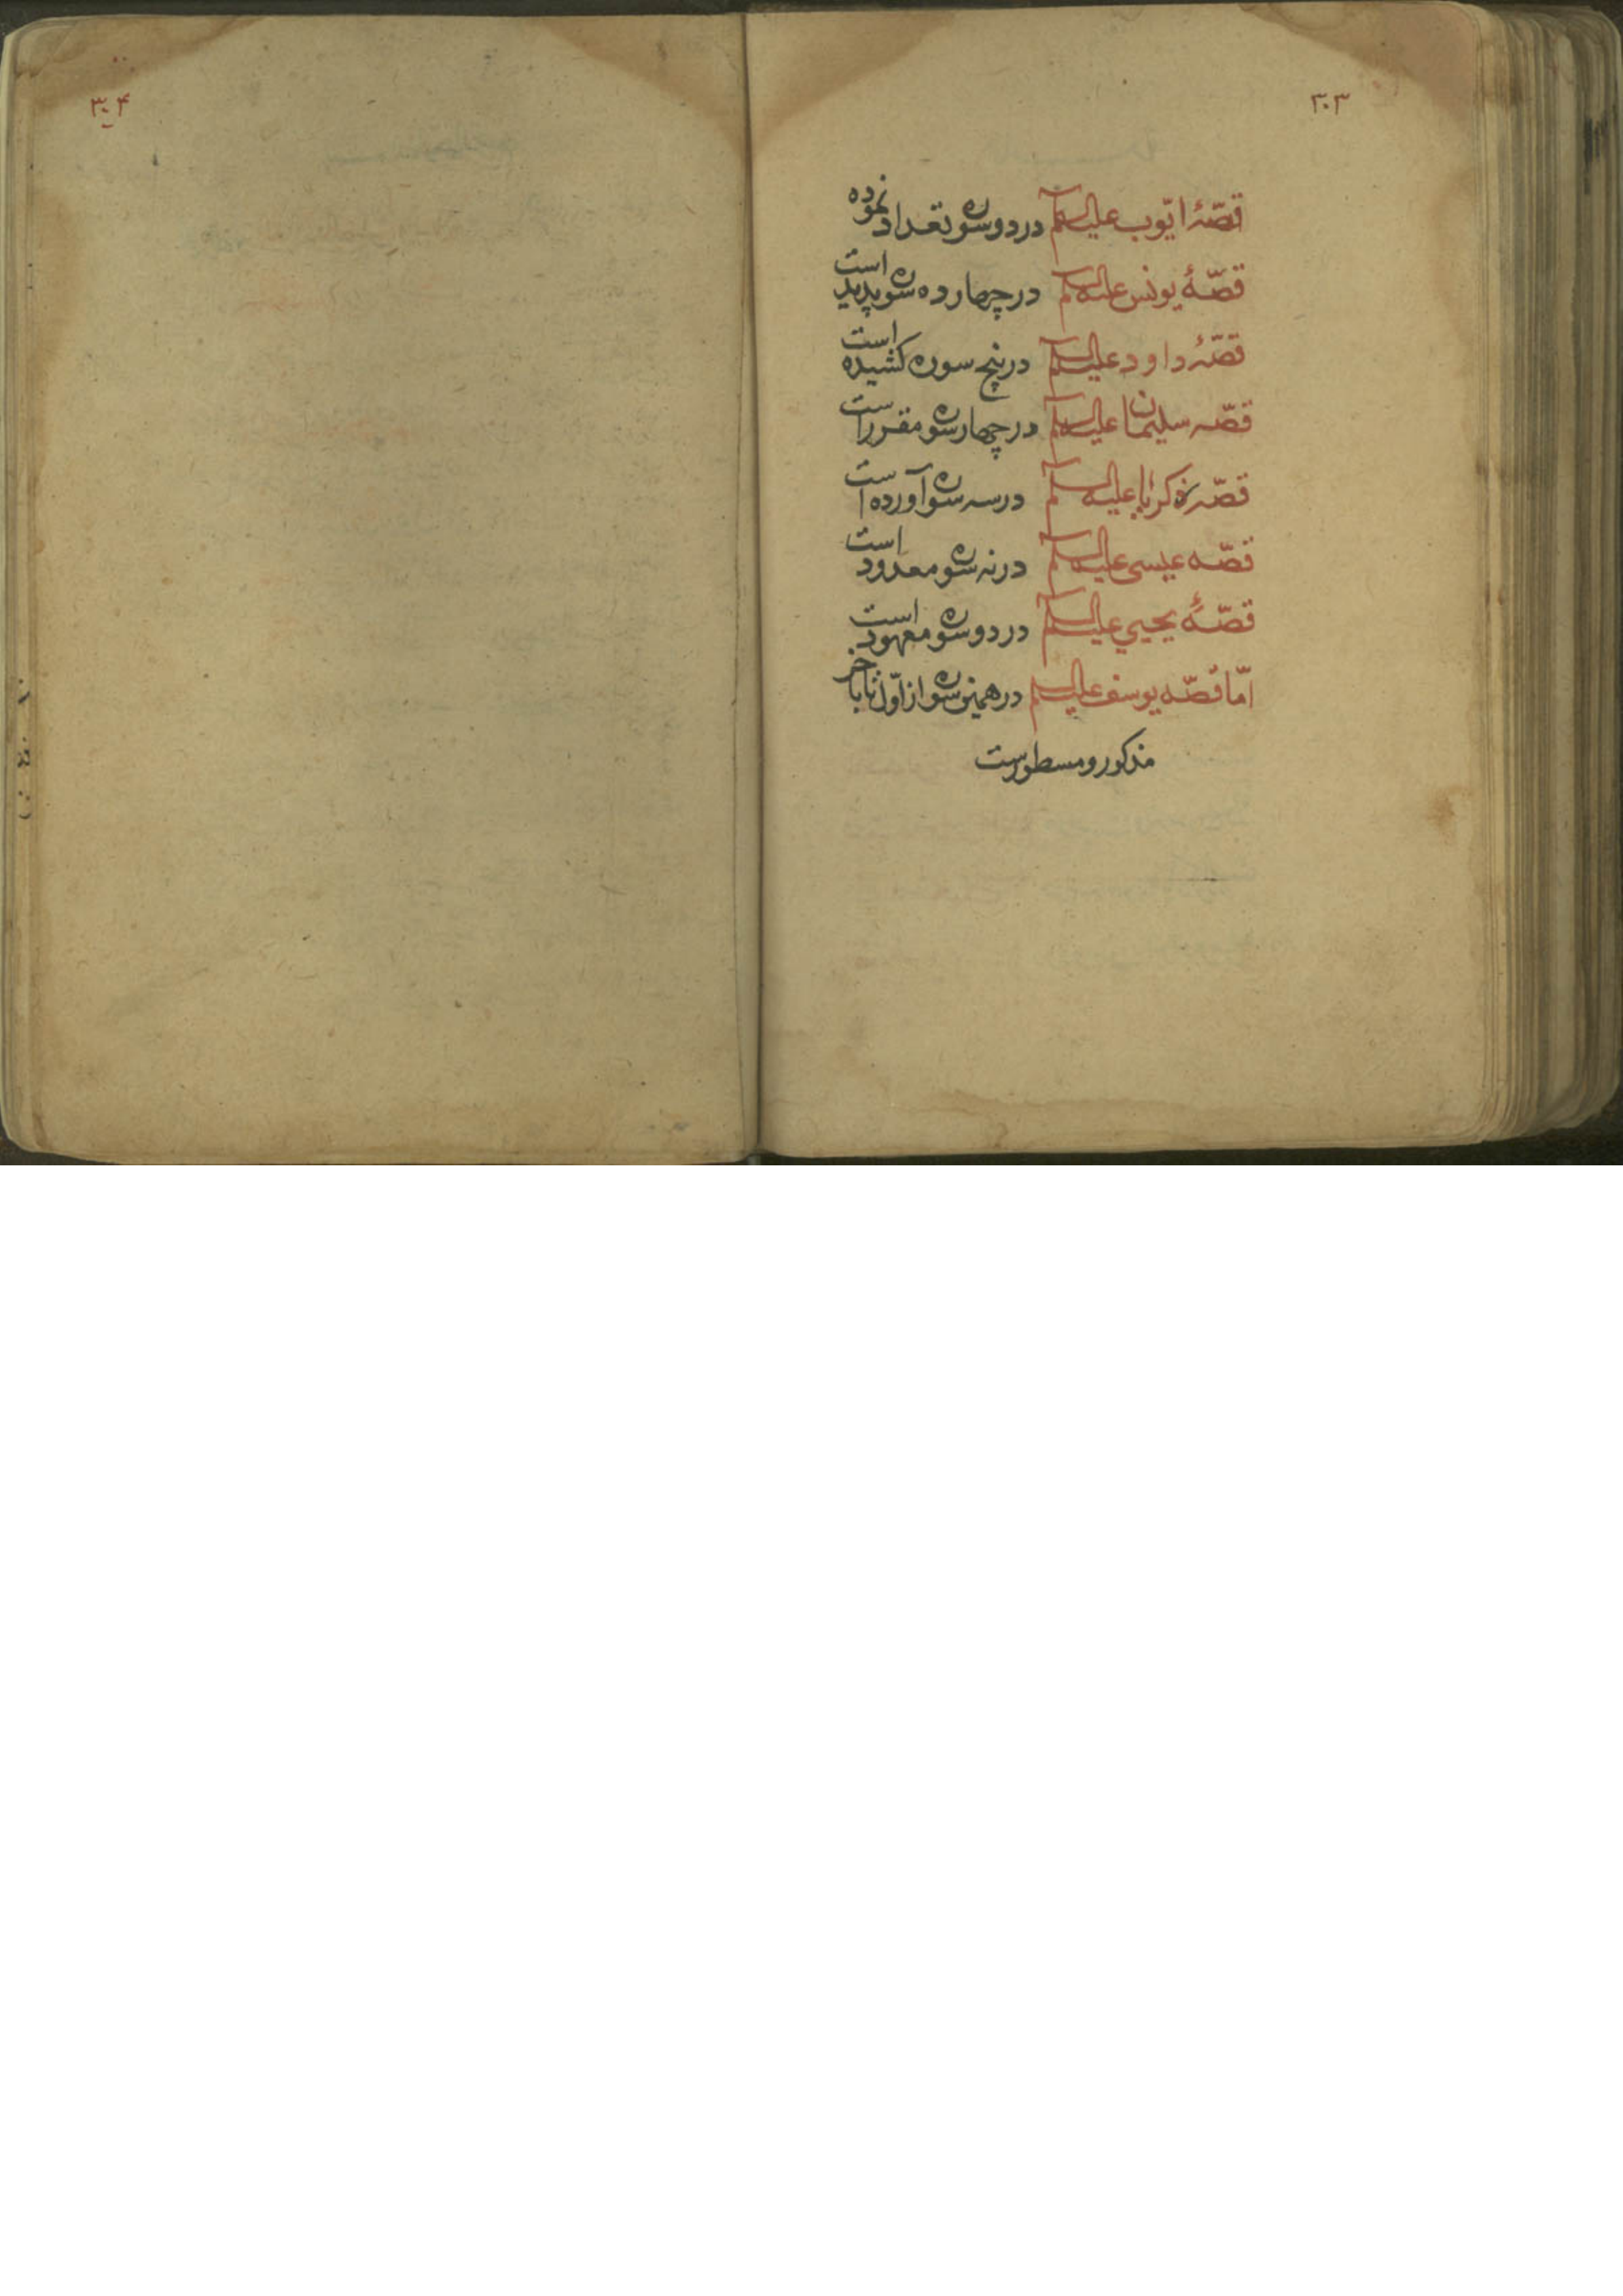 ۳۰۳
قصّهٔ ایّوب علیه السلم در دو سوره تعداد نموده
قصّهٔ یونس علیه السلم در چهار ده سوره پدید است
قصّهٔ داود علیه السلم در پنج سوره کشیده است
قصّه سلیمان علیه السلم در چهار سوره مقررا ست
قصّه زکریا علیه السلم در سه سوره آورده است
قصّه عیسی علیه السلم در نه سوره معدود است
قصّهٔ یحیی علیه السلم در دو سوره معهود است
امّا قصّه یوسف علیه السلم در همین سوره از اوّل تا بآخر
مذکور و مسطورست
۳۰۴